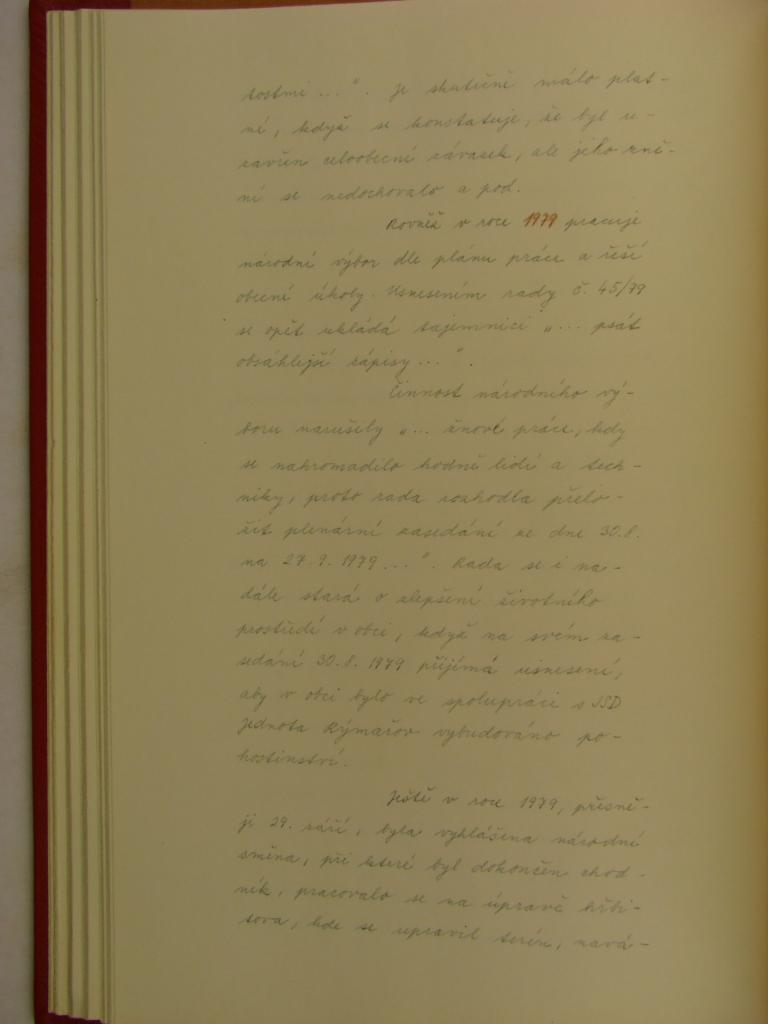 tostmi ...". Je skutečně málo plat-
né, když se konstatuje, že byl u-
zavřen celoobecní závazek, ale jeho zně-
ní se nedochovalo a pod.
Rovněž v roce 1979 pracuje
národní výbor dle plánu práce a řeší
obecní úkoly. Usnesením rady č. 45/79
se opět ukládá tajemnici "... psát
obsáhlejší zápisy ...".
Činnost národního vý-
boru narušily "... žňové práce, kdy
se nahromadilo hodně lidí a tech-
niky, proto rada rozhodla přelo-
žit plenární zasedání ze dne 30.8.
na 27.9.1979 ...". Rada se i na-
dále stará o zlepšení životního
prostředí v obci, když na svém za-
sedání 30.8.1979 přijímá usnesení,
aby v obci bylo ve spolupráci s JSD
Jednota Rýmařov vybudováno po-
hostinství.
Ještě v roce 1979, přesně-
ji 29. září, byla vyhlášena národní
směna, při které byl dokončen chod-
ník, pracovalo se na úpravě hřbi-
tova, kde se upravil terén, navá-